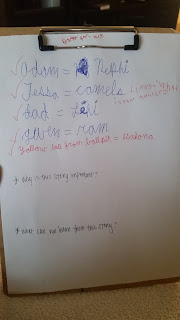 ✓ Adam = Nephi
✓ Jessa = camels
✓ Dad = Lehi
✓ = ram
✓ Yellow ball from ballpit = Liahona
* Why is this story important -
* What can we learn from this story -